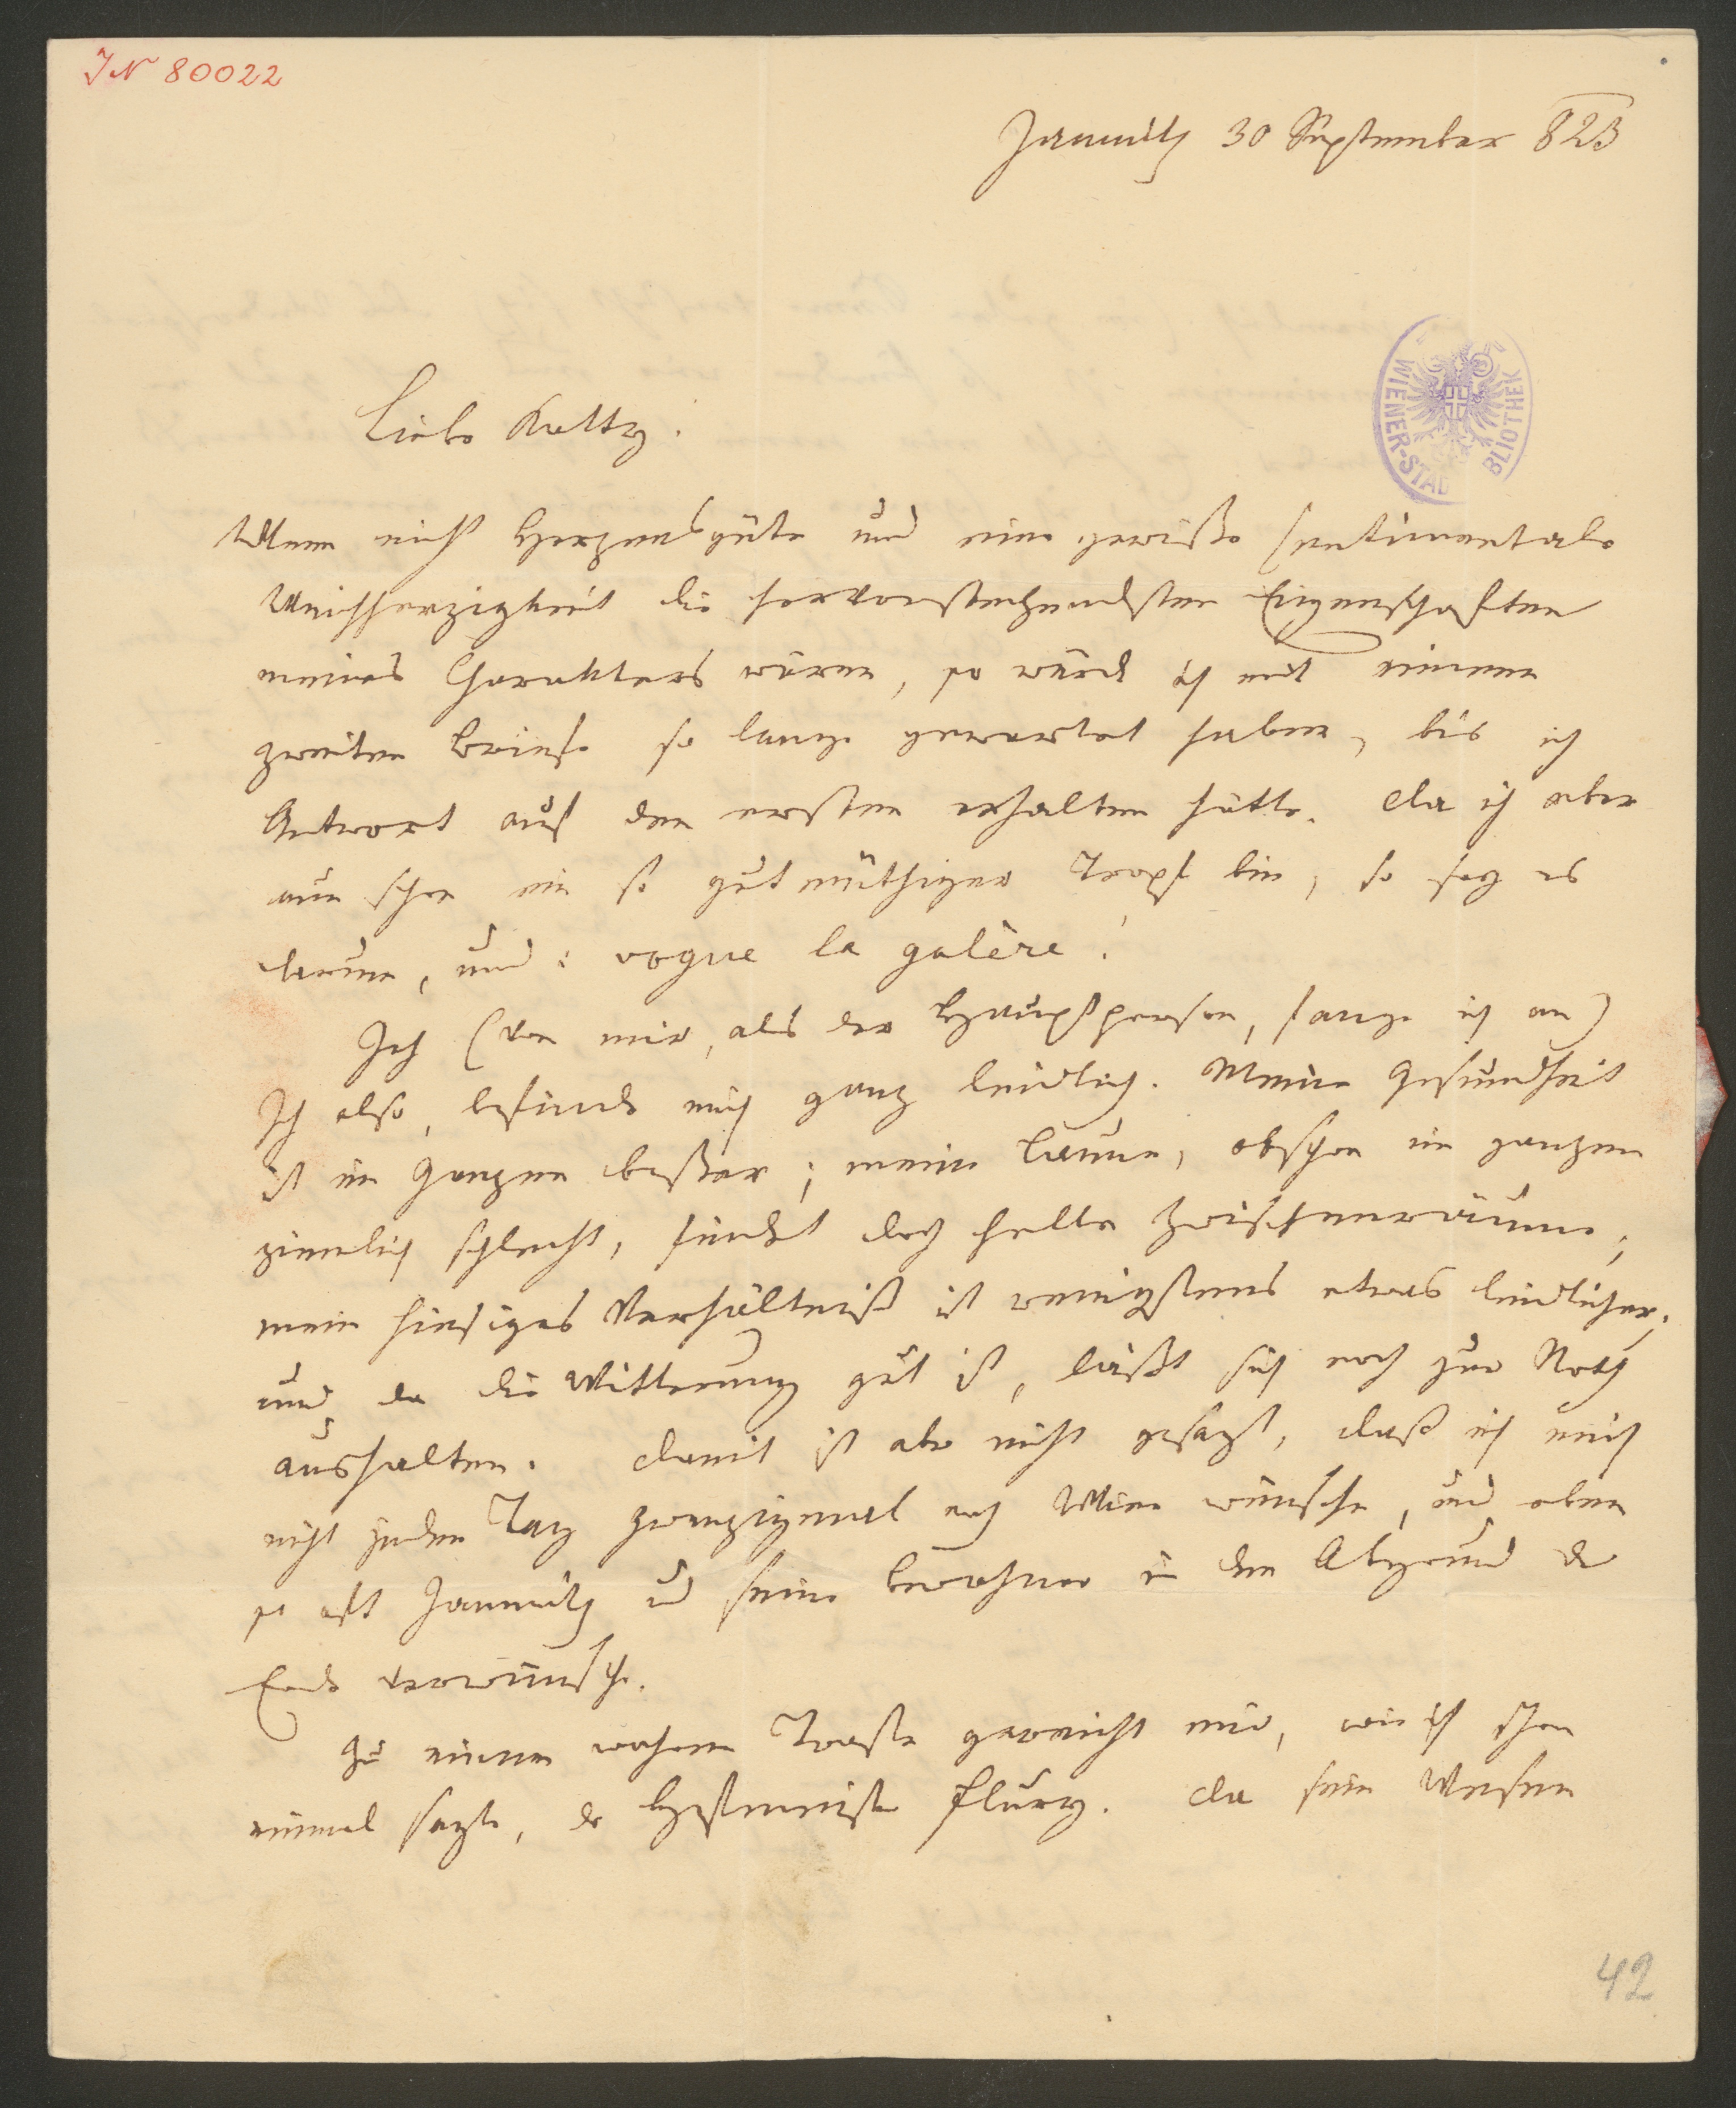 IN 80022
Jamnitz 30 September 823
WIENER-STADTBIBLIOTHEK
Liebe Katty.
Wenn nicht Herzensgüte und eine gewiße sentimentale
Weichherzigkeit die hervorstechendsten Eigenschaften
meines Charakters wären, so würd ich mit einem
zweiten Briefe so lange gewartet haben, bis ich
Antwort auf den ersten erhalten hätte. Da ich aber
nun schon ein so gutmüthiger Tropf bin, so sey es
darum, und: vogue la galère!
Ich (von mir, als der Hauptperson, fange ich an)
Ich also, befinde mich ganz leidlich. Meine Gesundheit
ist im Ganzen beßer; meine Laune, obschon im ganzen
ziemlich schlecht, findet doch helle Zwischenräume;
mein hiesiges Verhältniß ist wenigstens etwas leidlicher;
und da die Witterung gut ist, läßt sichs noch zur Noth
aushalten. Damit ist aber nicht gesagt, daß ich mich
nicht jeden Tag zwanzigmal nach Wien wünsche, und eben
so oft Jamnitz und seine Bewohner in den Abgrund der
Erde verwünsche.
Zu einem wahren Troste gereicht mir, wie ich schon
einmal sagte, der Hofmeister Fleury. Da sein Wesen
42